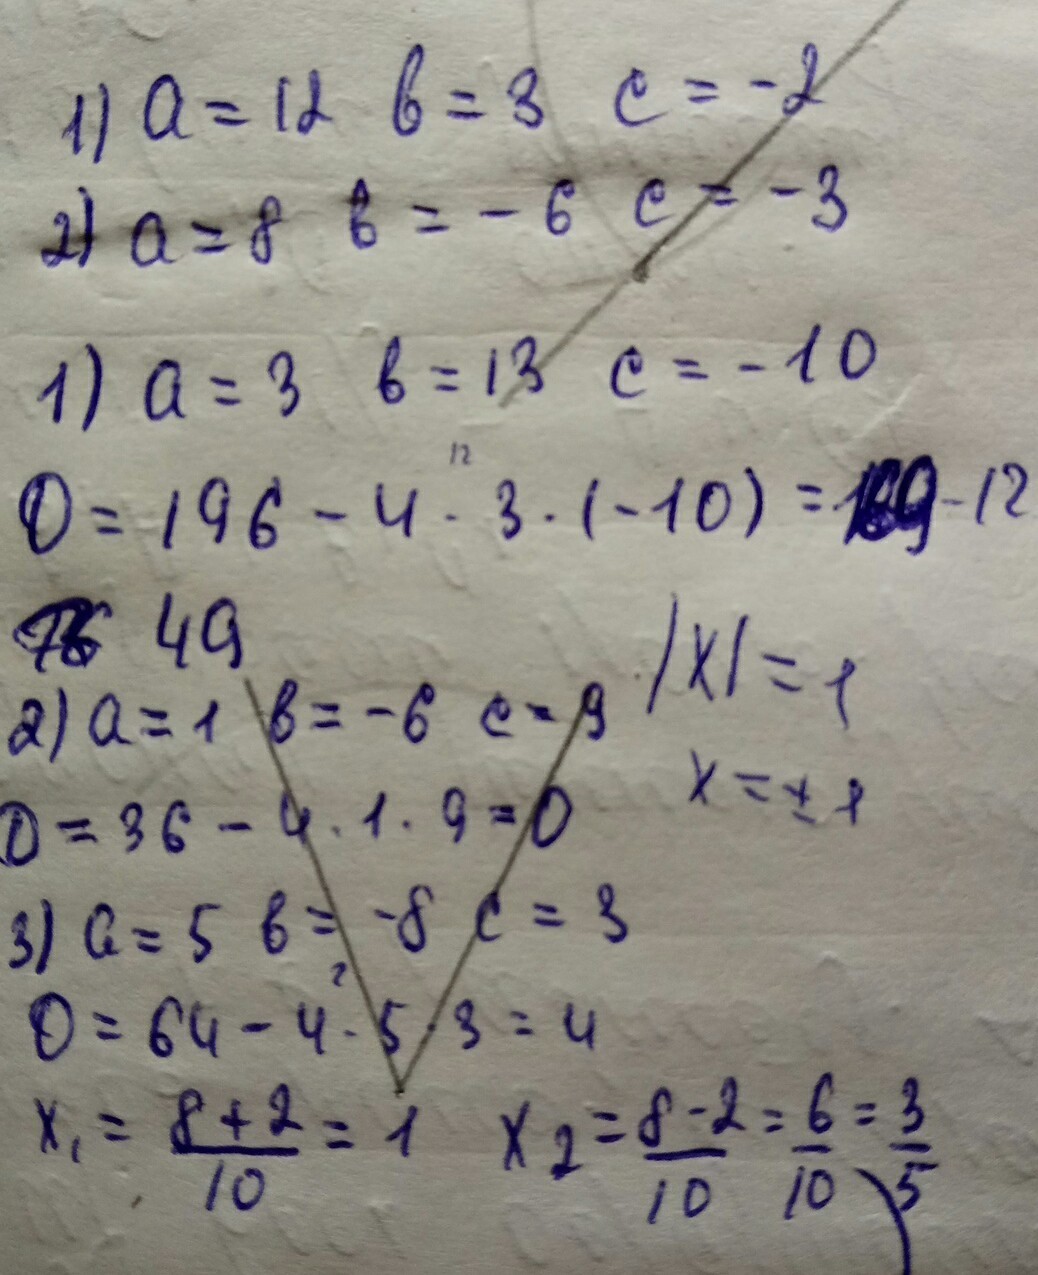 1) a = 12 в = 3 c = -2
2) a = 8 в = - 6 c = - 3
1) a = 3 в = 13 c = - 10
12
D = 196 - 4 · 3 · (-10) = 169 - 12
49
2) a = 1 в = -6 c = 9
D = 36 - 4 · 1 · 9 = 0
|x| = 1
x = ± 1
3) a = 5 в = -8 c = 3
2
D = 64 - 4 · 5 · 3 = 4
x₁ = 8 + 2 / 10 = 1 x₂ = 8 - 2 / 10 = 6 / 10 = 3 / 5